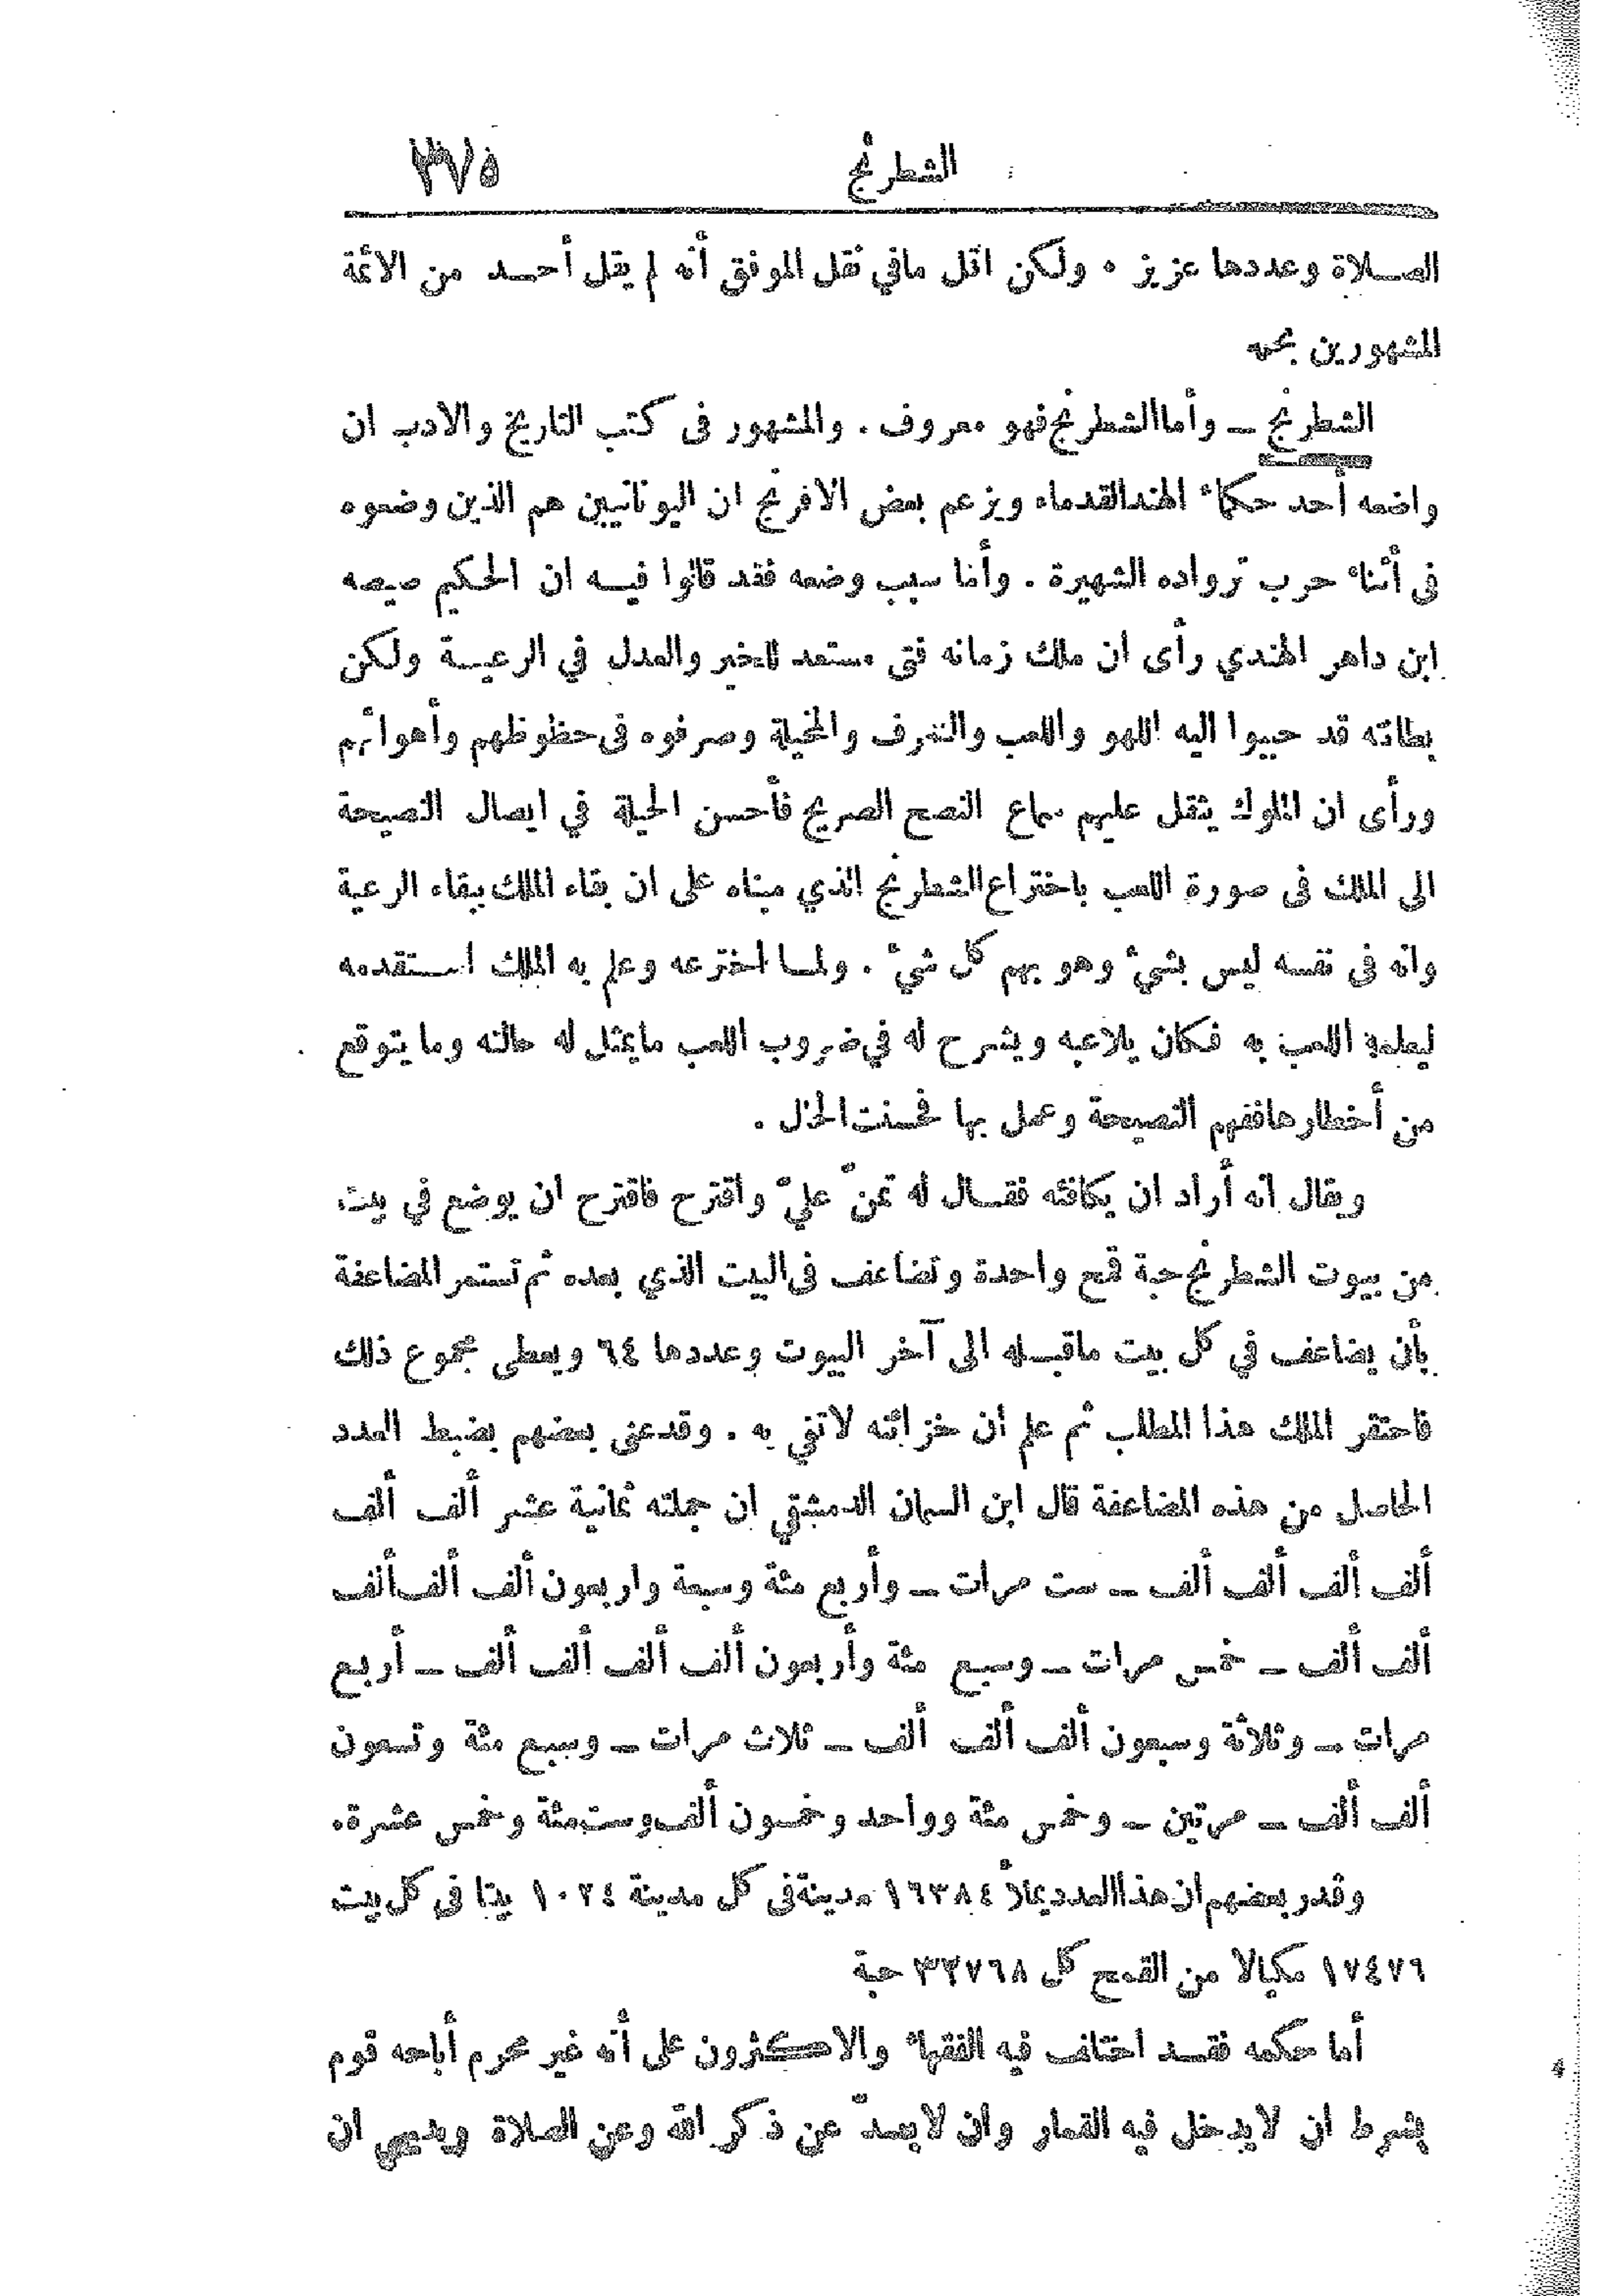 الشطرنج ٣٧٥
الصلاة وعددها عزيز ٠ ولكن اقل مافي نقل الموفق أنه لم يقل أحد من الائمة
المشهورين بحله
الشطرنج – وأما الشطرنج فهو معروف . والمشهور فى كتب التاريخ والادب ان
واضعه أحد حكماء الهند القدماء ويزعم بعض الافرنج ان اليونانيين هم الذين وضعوه
فى أثناء حرب ترواده الشهيرة . وأما سبب وضعه فقد قالوا فيه ان الحكيم صيصه
ابن داهر الهندي رأى ان ملك زمانه فتى مستعد للخير والعدل في الرعية ولكن
بطانته قد حببوا اليه اللهو واللعب والترف والمخيلة وصرفوه فى حظوظهم وأهوائهم
ورأى ان الملوك يثقل عليهم سماع النصح الصريح فأحسن الحيلة في ايصال النصيحة
الى الملك فى صورة اللعب باختراع الشطرنج الذي مبناه على ان بقاء الملك ببقاء الرعية
وانه فى نفسه ليس بشيء وهو بهم كل شيء . ولما اخترعه وعلم به الملك استقدمه
ليعلمه اللعب به فكان يلاعبه ويشرح له في ضروب اللعب مايمثل له حالته وما يتوقع
من أخطارها ففهم النصيحة وعمل بها فحسنت الحال .
ويقال انه أراد ان يكافئه فقال له تمنّ عليّ واقترح فاقترح ان يوضع في بيت
من بيوت الشطرنج حبة قمح واحدة وتضاعف فى البيت الذي بعده ثم تستمر المضاعفة
بأن يضاعف في كل بيت ماقبله الى آخر البيوت وعددها ٦٤ ويعطى مجموع ذلك
فاحتقر الملك هذا المطلب ثم علم ان خزائنه لاتفي به . وقد عنى بعضهم بضبط العدد
الحاصل من هذه المضاعفة قال ابن السمان الدمشقي ان جملته ثمانية عشر ألف ألف
ألف ألف ألف ألف – ست مرات – وأربع مئة وسبعة واربعون ألف ألف ألف
ألف ألف – خمس مرات – وسبع مئة وأربعون ألف ألف ألف ألف – أربع
مرات – وثلاثة وسبعون ألف ألف ألف – ثلاث مرات – وسبع مئة وتسعون
ألف ألف – مرتين – وخمس مئة وواحد وخمسون ألف وست مئة وخمس عشرة.
وقدر بعضهم ان هذا العدد يملأ ١٦٣٨٤ مدينة فى كل مدينة ١٠٢٤ بيتا فى كل بيت
١٧٤٧٦ مكيالا من القمح كل ٣٢٧٦٨ حبة
أما حكمه فقد اختلف فيه الفقهاء والاكثرون على أنه غير محرم أباحه قوم
بشرط ان لا يدخل فيه القمار وان لا يصدّ عن ذكر الله وعن الصلاة وبديهي ان